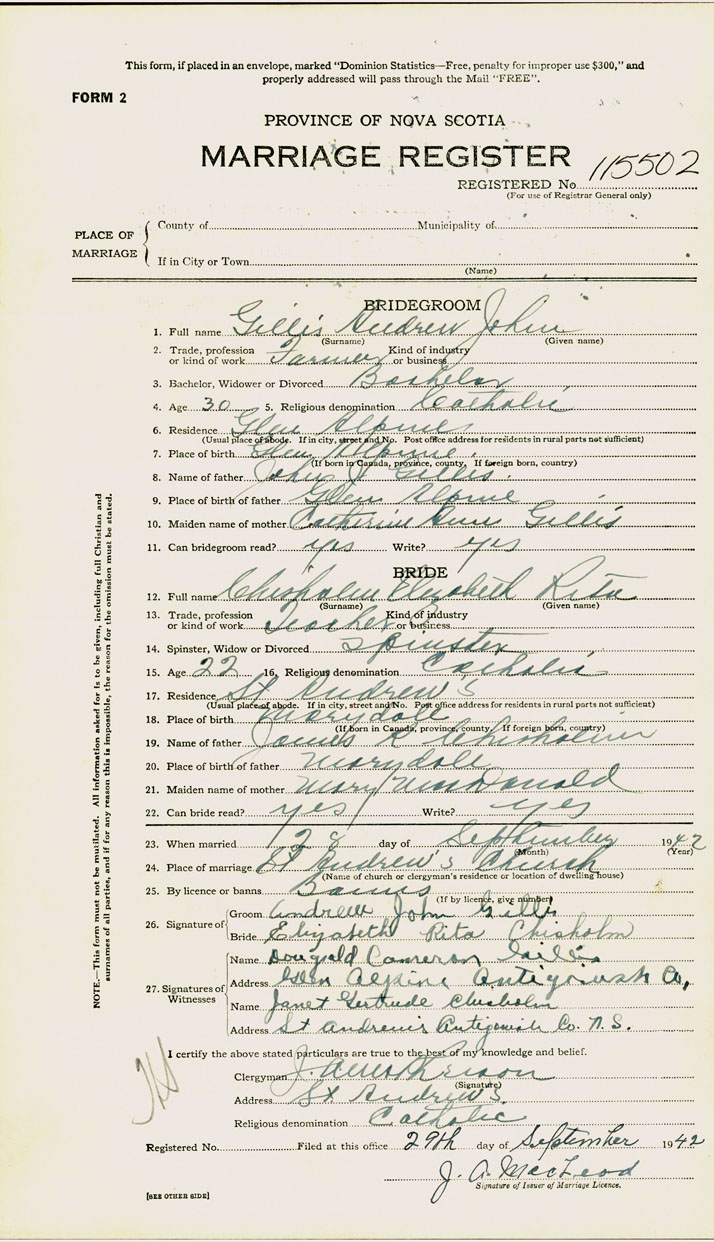 This form, if placed in an envelope, marked "Dominion Statistics—Free, penalty for improper use $300," and
properly addressed will pass through the Mail "FREE".
FORM 2
PROVINCE OF NOVA SCOTIA
MARRIAGE REGISTER
REGISTERED No. 115502
(For use of Registrar General only)
PLACE OF MARRIAGE
County of Municipality of
If in City or Town
(Name)
BRIDEGROOM
1. Full name Gillis Andrew John
(Surname) (Given name)
2. Trade, profession or kind of work Farmer Kind of industry or business
3. Bachelor, Widower or Divorced Bachelor
4. Age 30 5. Religious denomination Catholic
6. Residence Glen Alpine
(Usual place of abode. If in city, street and No. Post office address for residents in rural parts not sufficient)
7. Place of birth Glen Alpine
(If born in Canada, province, county, If foreign born, country)
8. Name of father John J Gillis
9. Place of birth of father Glen Alpine
10. Maiden name of mother Catherine Ann Gillis
11. Can bridegroom read? yes Write? yes
BRIDE
12. Full name Chisholm Elizabeth Rita
(Surname) (Given name)
13. Trade, profession or kind of work Teacher Kind of industry or business
14. Spinster, Widow or Divorced Spinster
15. Age 22 16. Religious denomination Catholic
17. Residence St Andrew's
(Usual place of abode. If in city, street and No. Post office address for residents in rural parts not sufficient)
18. Place of birth Marydale
(If born in Canada, province, county, If foreign born, country)
19. Name of father James R Chisholm
20. Place of birth of father Marydale
21. Maiden name of mother Mary MacDonald
22. Can bride read? yes Write? yes
23. When married 28 day of September 1942
(Month) (Year)
24. Place of marriage St Andrew's Church
(Name of church or clergyman's residence or location of dwelling house)
25. By licence or banns Banns
(If by licence, give number)
26. Signature of
Groom Andrew John Gillis
Bride Elizabeth Rita Chisholm
27. Signatures of Witnesses
Name Dougald Cameron Gillis
Address Glen Alpine Antigonish Co,
Name Janet Gertrude Chisholm
Address St Andrew's Antigonish Co. N.S.
I certify the above stated particulars are true to the best of my knowledge and belief.
Clergyman J.
(Signature)
Address St Andrew's
Religious denomination Catholic
Registered No. Filed at this office 29th day of September 1942
J. A. MacLeod
Signature of Issuer of Marriage Licence.
[SEE OTHER SIDE]
NOTE.—This form must not be mutilated. All information asked for is to be given, including full Christian and
surnames of all parties, and if for any reason this is impossible, the reason for the omission must be stated.